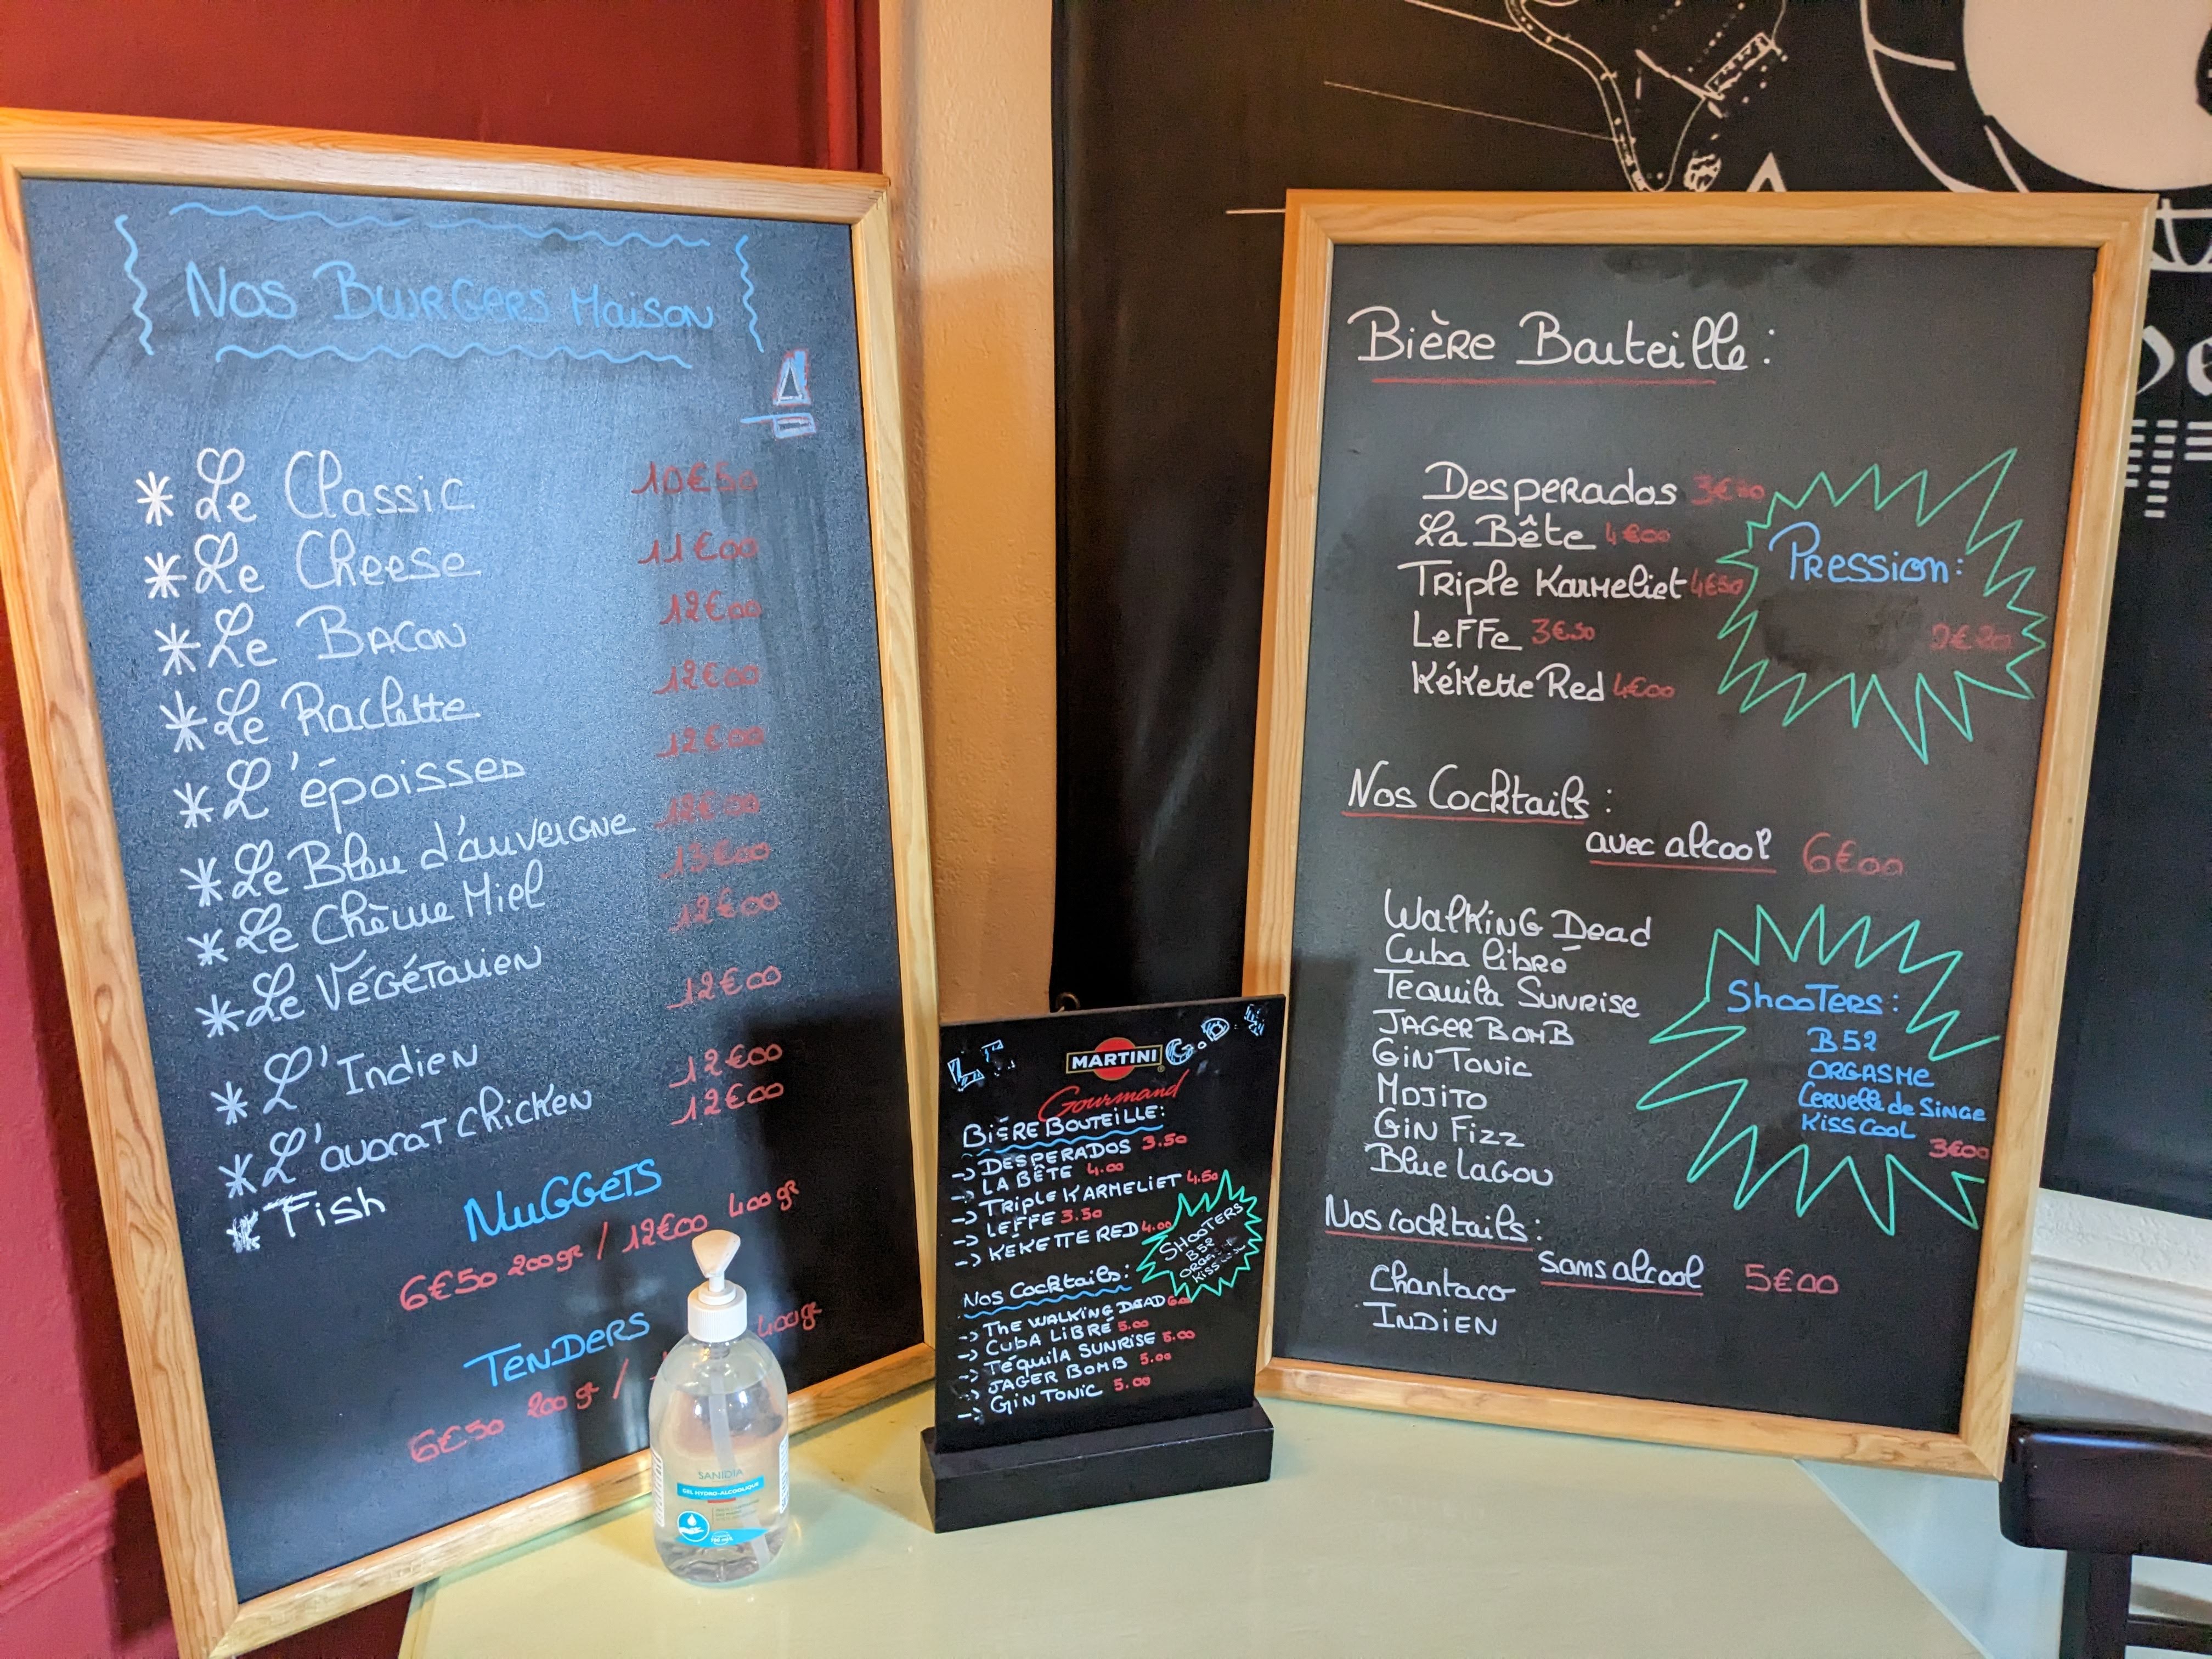 Nos Burgers Maison
* Le Classic 10€50
* Le Cheese 11€00
* Le Bacon 12€00
* Le Raclette 12€00
* L'époisses 12€00
* Le Bleu d'auvergne 12€00
* Le Chèvre Miel 13€00
* Le Végétarien 12€00
* L'Indien 12€00
* L'avocat chicken 12€00
* Fish 12€00
Nuggets
6€50 200gr / 12€00 400gr
Tenders
6€50 200gr / 400gr
SANIDIA
GEL HYDRO-ALCOOLIQUE
MARTINI
Gourmand
BIÈRE BOUTEILLE:
-> DESPERADOS 3.50
-> LA BÊTE 4.00
-> TRIPLE KARMELIET 4.50
-> LEFFE 3.50
-> KÉKETTE RED 4.00
SHOOTERS
B52
KISS COOL
Nos Cocktails:
-> THE WALKING DEAD
-> CUBA LIBRÉ 5.00
-> TÉQUILA SUNRISE 5.00
-> JAGER BOMB 5.00
-> GIN TONIC 5.00
Bière Bouteille:
Desperados
La Bête 4€00
Triple Karmeliet 4€50
Leffe 3€50
Kékette Red 4€00
Pression:
Nos Cocktails:
avec alcool 6€00
Walking Dead
Cuba libré
Tequila Sunrise
JAGER BOMB
Gin Tonic
MOJITO
Gin Fizz
Blue Lagou
Shooters:
B52
ORGASME
Cervelle de Singe
Kiss Cool
3€00
Nos cocktails:
sans alcool 5€00
Chantaco
INDIEN